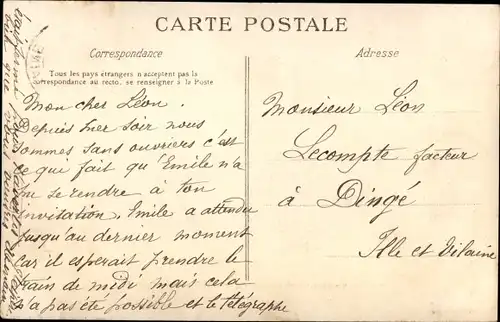 CARTE POSTALE
Correspondance
Adresse
Tous les pays étrangers n'acceptent pas la
correspondance au recto, se renseigner à la Poste
Mon cher Léon.
Depuis hier soir nous
sommes sans ouvriers c'est
ce qui fait qu'Emile n'a
pu se rendre a ton
invitation, Emile a attendu
jusqu'au dernier moment
car il esperait prendre le
train de midi mais cela
n'a pas été possible et le télégraphe
Monsieur Léon
Lecompte facteur
à Dingé
Ille et Vilaine